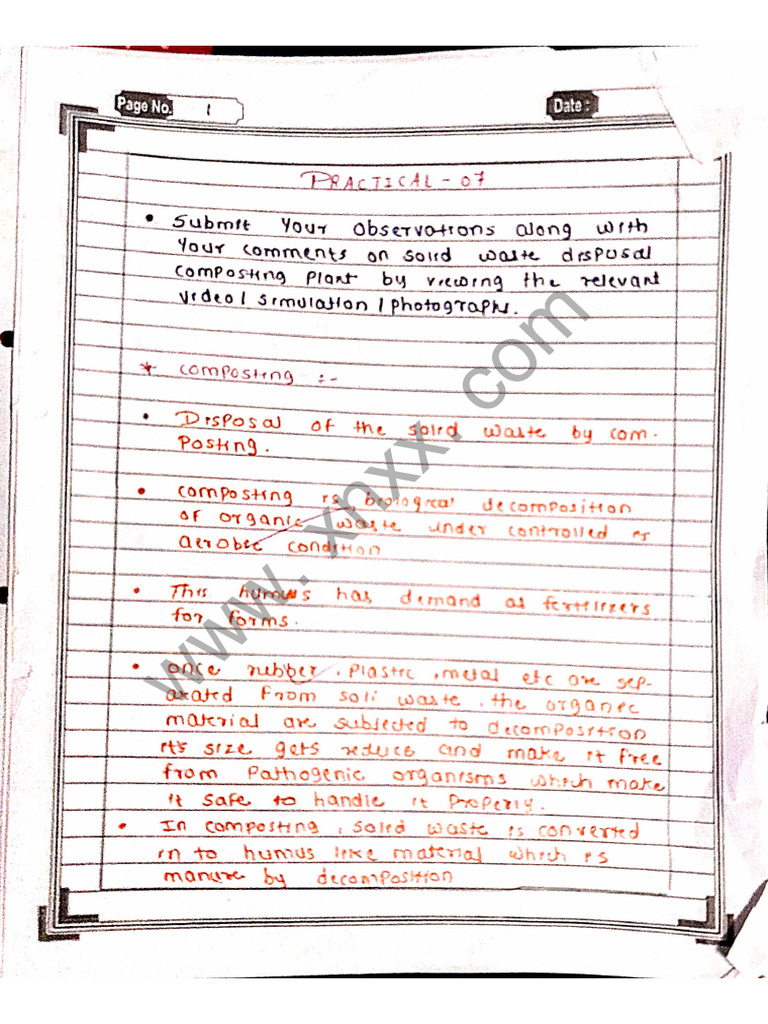 Page No. 1
Date :
PRACTICAL - 07
• Submit your observations along with
your comments on solid waste disposal
composting plant by viewing the relevant
video / simulation / photographs.
* composting :-
• Disposal of the solid waste by com-
posting.
• composting is biological decomposition
of organic waste under controlled
aerobic condition
• This humus has demand as fertilizers
for forms.
• once rubber, plastic, metal etc are sep-
arated from soli waste, the organic
material are subjected to decomposition
it's size gets reduce and make it free
from pathogenic organisms which make
it safe to handle it properly.
• In composting, solid waste is converted
in to humus like material which is
manure by decomposition
www.xnxx.com